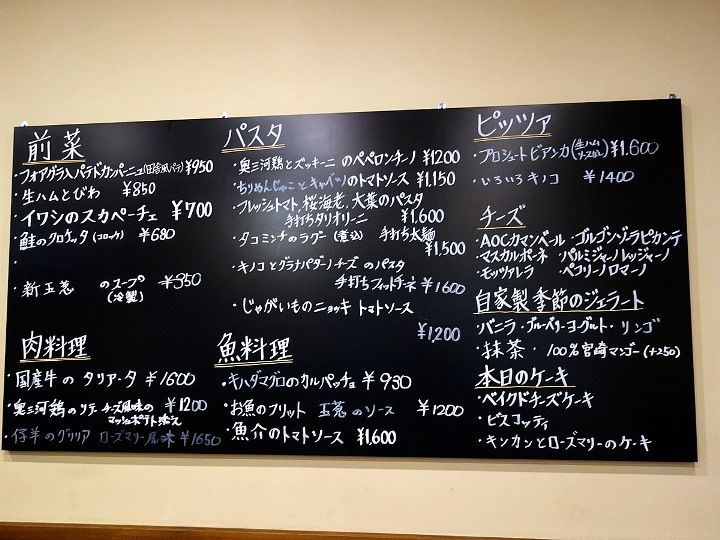 前菜
・フォアグラ入パテドカンパーニュ(田舎風パテ) ¥950
・生ハムとびわ ¥850
・イワシのスカペーチェ ¥700
・鮭のクロケッタ(コロッケ) ¥680
・
・新玉葱 のスープ ¥350
(冷製)
肉料理
・国産牛のタリアータ ¥1600
・奥三河鶏のソテー チーズ風味の ¥1200
マッシュポテト添え
・仔羊のグリリア ローズマリー風味 ¥1650
パスタ
・奥三河鶏とズッキーニのペペロンチーノ ¥1200
・ちりめんじゃことキャベツのトマトソース ¥1,150
・フレッシュトマト,桜海老,大葉のパスタ
手打ちタリオリーニ ¥1,600
・タコミンチのラグー(煮込) 手打ち太麺
¥1,500
・キノコとグラナパダーノチーズのパスタ
手打ちフィットチネ ¥1600
・じゃがいものニョッキ トマトソース
¥1,200
魚料理
・キハダマグロのカルパッチョ ¥930
・お魚のフリット 玉葱のソース ¥1200
・魚介のトマトソース ¥1,600
ピッツァ
・プロシュートビアンカ(生ハム ¥1,600
・いろいろキノコ ¥1400
チーズ
・AOCカマンベール ・ゴルゴンゾーラピカンテ
・マスカルポーネ ・パルミジャーノレッジャーノ
・モッツァレラ ・ペコリーノロマーノ
自家製季節のジェラート
・バニラ・ブルーベリーヨーグルト・リンゴ
・抹茶・100%宮崎マンゴー(+250)
本日のケーキ
・ベイクドチーズケーキ
・ビスコッティ
・キンカンとローズマリーのケーキ